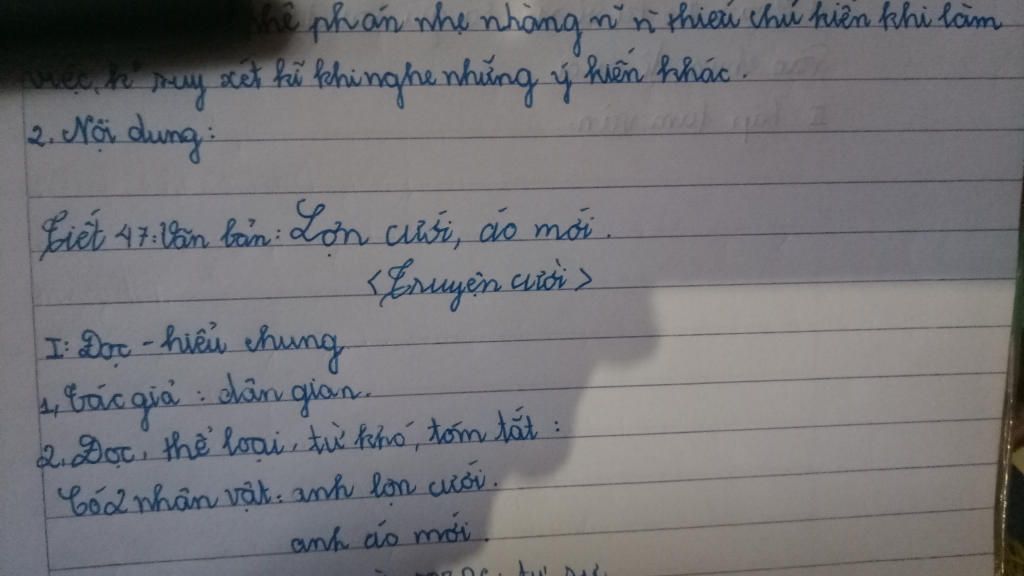 phán nhẹ nhàng n~ n` thiếu chủ kiến khi làm
việc, k° suy xét kĩ khi nghe những ý kiến khác.
2. Nội dung:
Tiết 47: Văn bản: Lợn cưới, áo mới.
<Truyện cười>
I: Đọc - hiểu chung
1, Tác giả: dân gian.
2. Đọc, thể loại, từ khó, tóm tắt:
Có 2 nhân vật: anh lợn cưới.
anh áo mới.